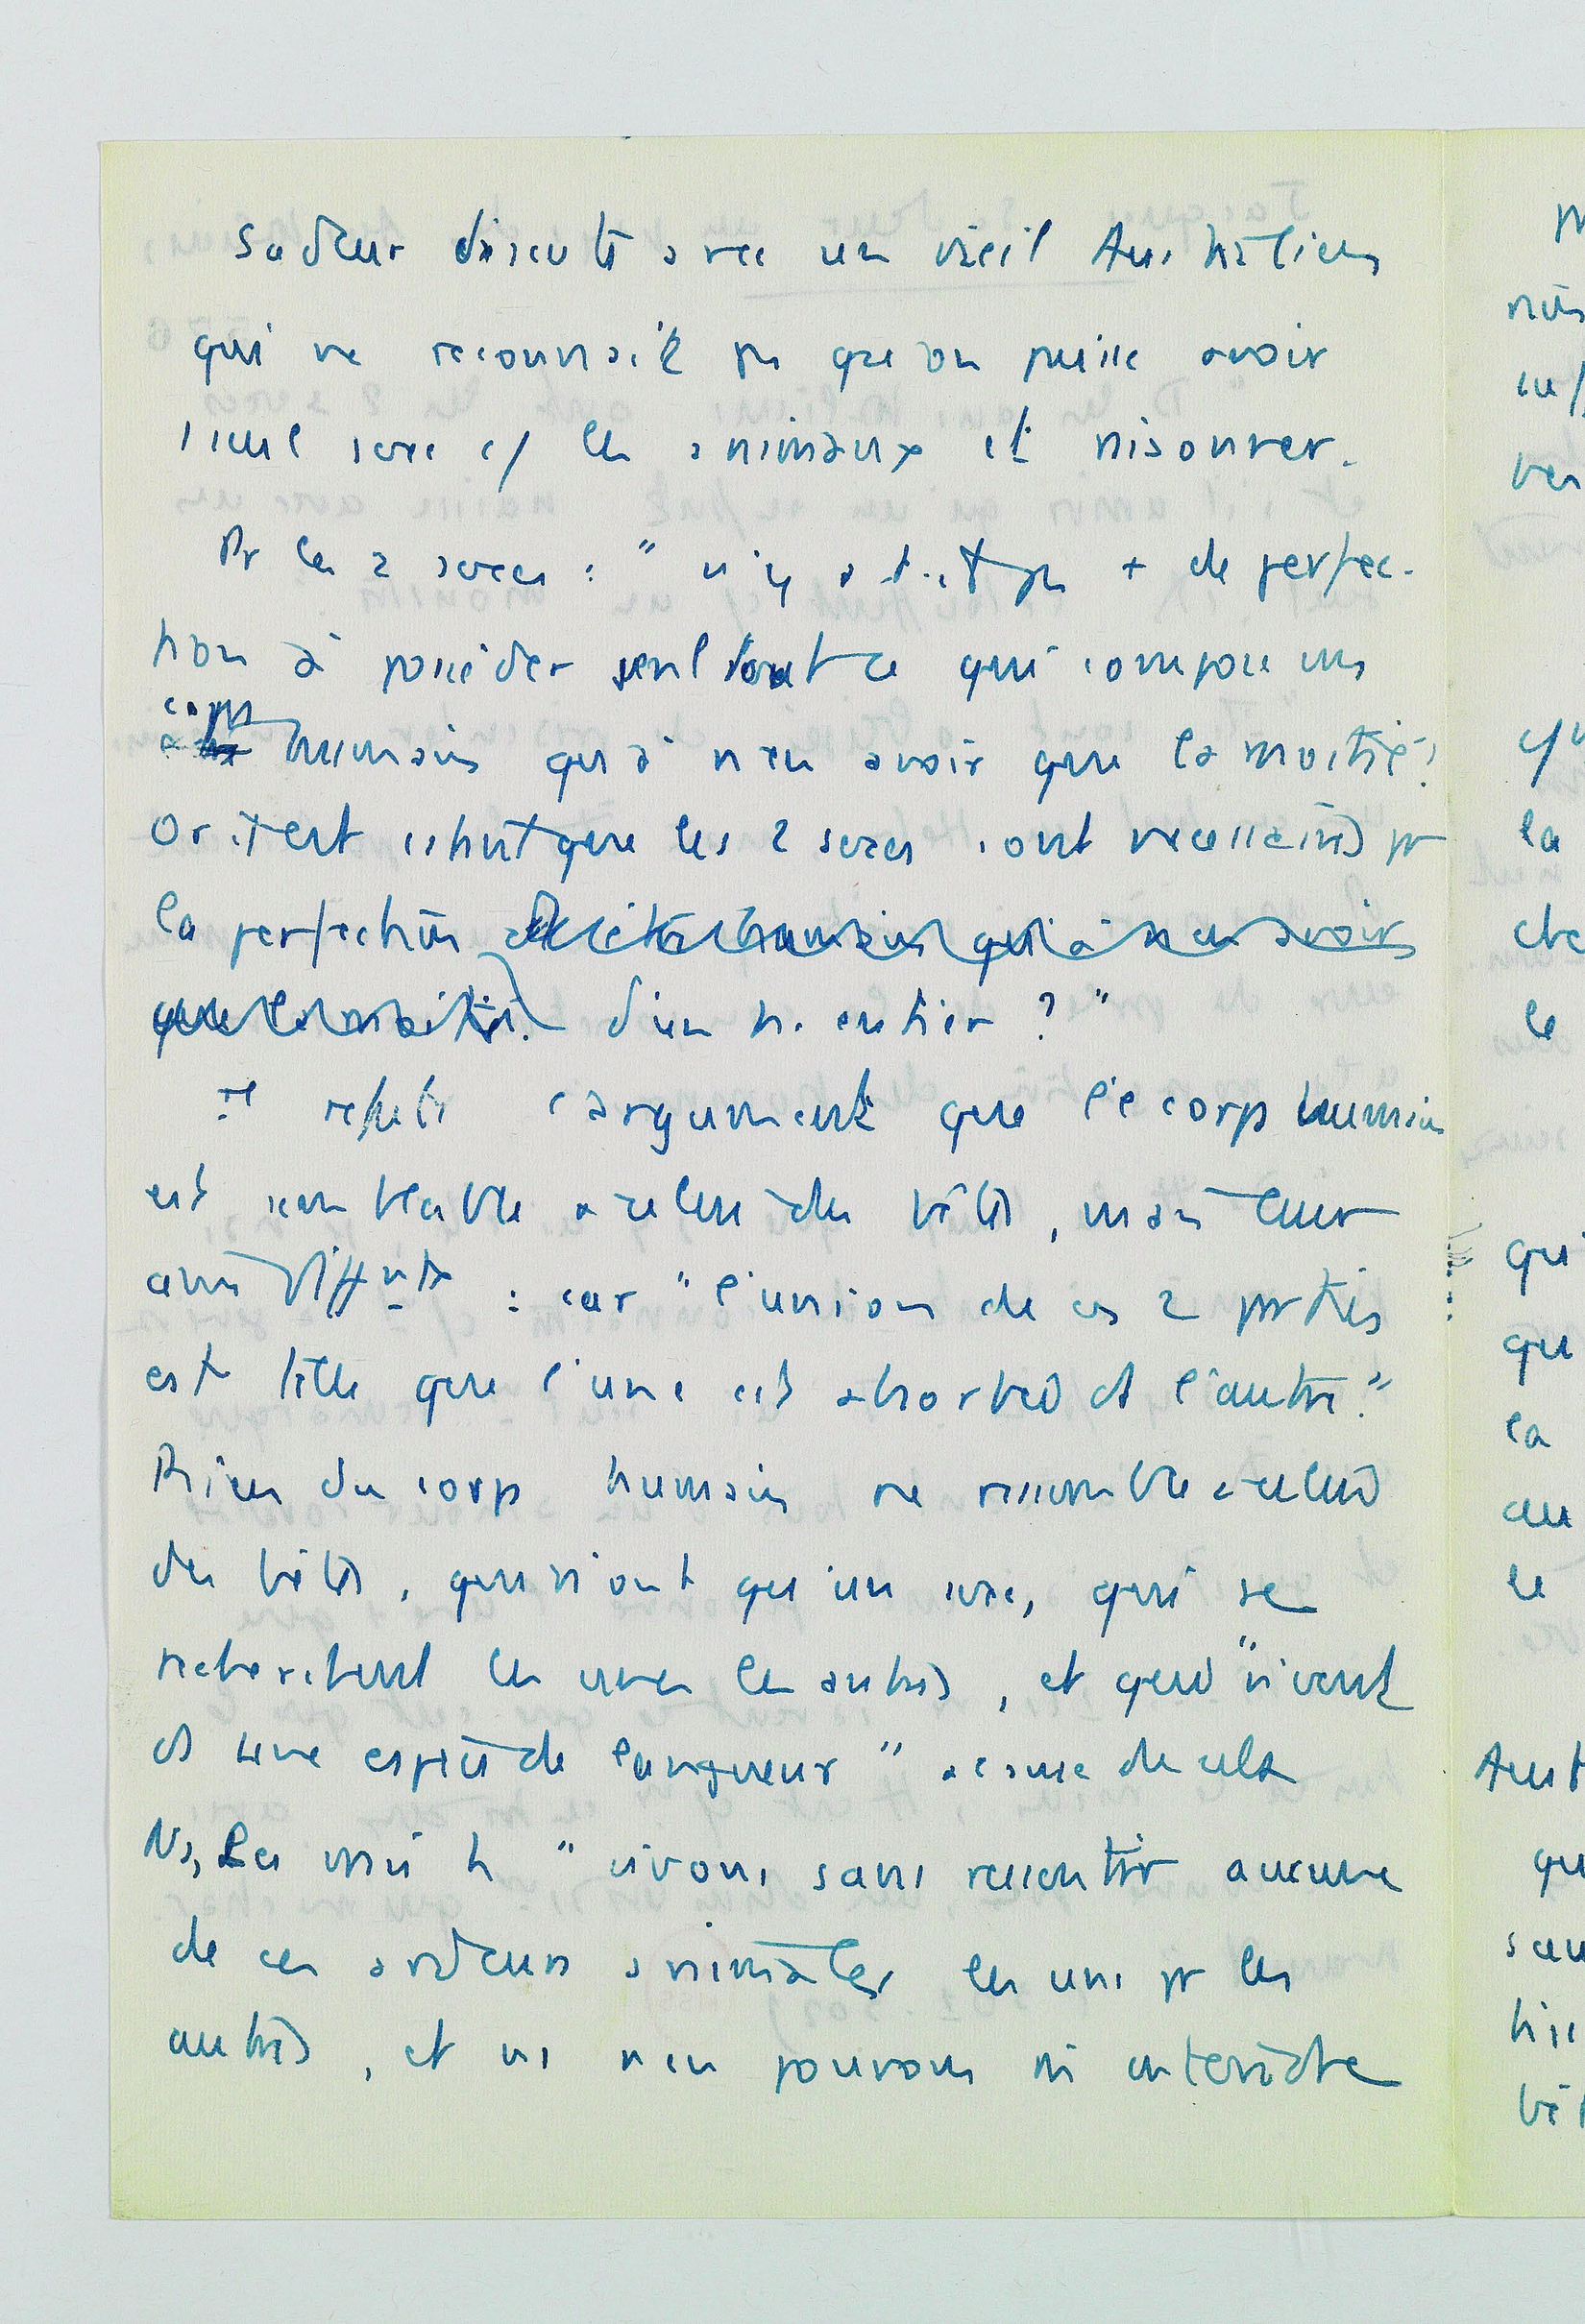 Sadeur discute avec un vieil Australien
qui ne reconnait pas que on puisse avoir
1 seul sexe c/ les animaux et raisonner.
Pr les 2 sexes : " n'y a t-il pas + de perfec-
tion à posséder seul tout ce qui compose un
corps humain qu'à n'en avoir que la moitié ?
Or il est certain que les 2 sexes sont necessaires pr
la perfection
d'un h. entier ? "
Il refute l'argument que le corps humain
est semblable a celui des bêtes, mais leur
ame diffte : car " l'union de ces 2 parties
est telle que l'une est absorbée ds l'autre."
Rien du corps humain ne ressemble a celui
des bêtes, qui n'ont qu'un sexe, qui se
recherchent les unes les autres, et qui " vivent
ds une espèce de langueur " a cause de cela
Ns, Les vrais h " vivons sans ressentir aucune
de ces ardeurs animales les uns pr les
autres, et ns n'en pouvons ni entendre